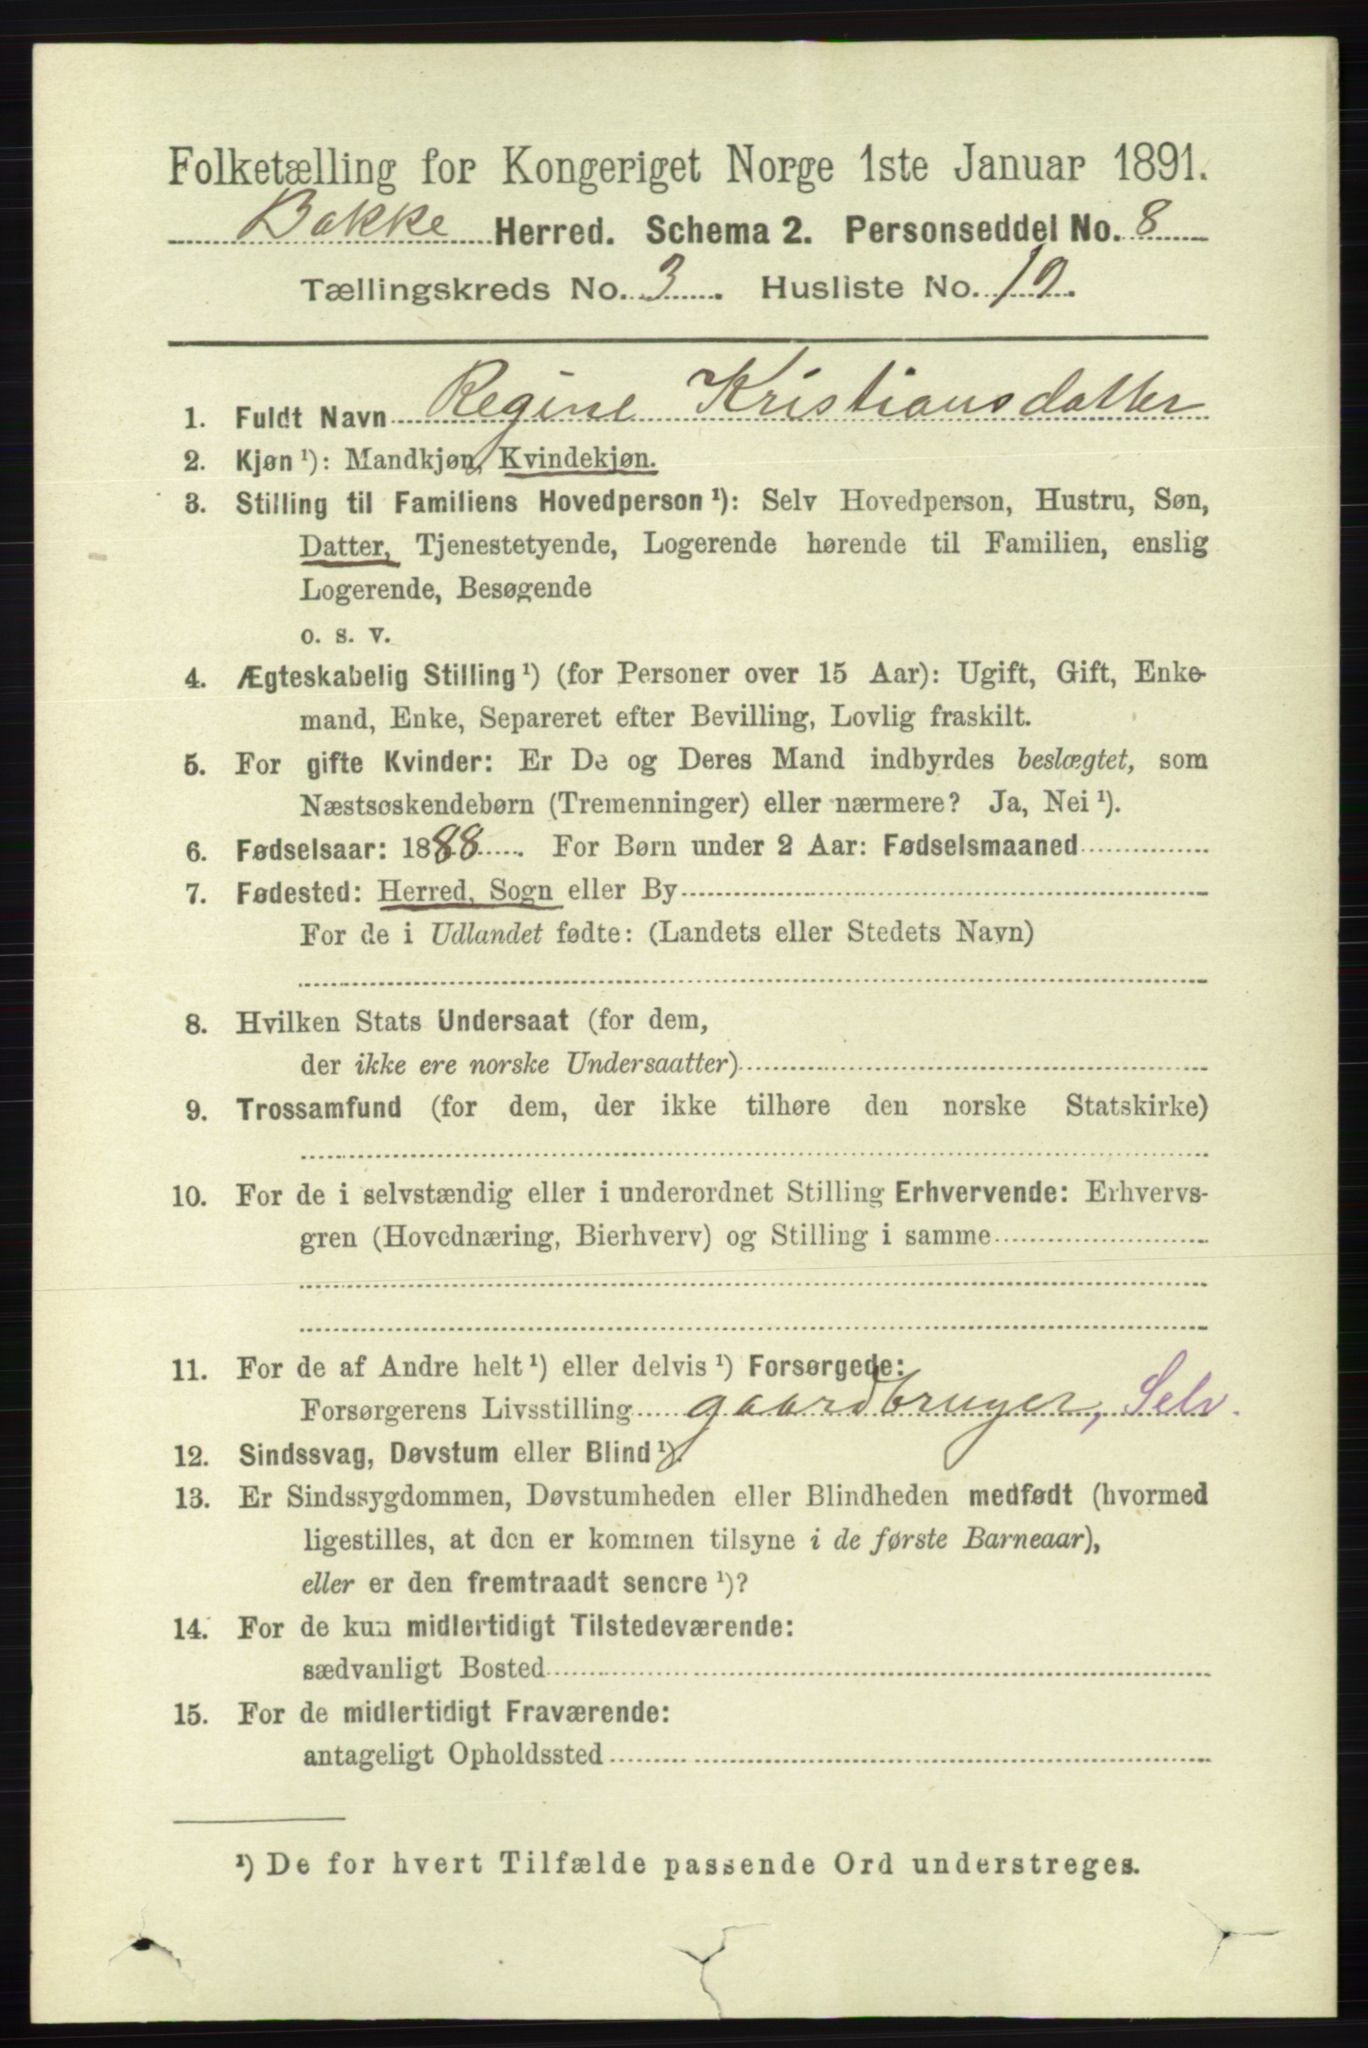 Folketælling for Kongeriget Norge 1ste Januar 1891.
Bakke Herred. Schema 2. Personseddel No. 8
Tællingskreds No. 3. Husliste No. 19.
1. Fuldt Navn Regine Kristiansdatter
2. Kjøn ¹): Mandkjøn, Kvindekjøn.
3. Stilling til Familiens Hovedperson ¹): Selv Hovedperson, Hustru, Søn,
Datter, Tjenestetyende, Logerende hørende til Familien, enslig
Logerende, Besøgende
o. s. v.
4. Ægteskabelig Stilling ¹) (for Personer over 15 Aar): Ugift, Gift, Enke-
mand, Enke, Separeret efter Bevilling, Lovlig fraskilt.
5. For gifte Kvinder: Er De og Deres Mand indbyrdes beslægtet, som
Næstsøskendebørn (Tremenninger) eller nærmere? Ja, Nei ¹).
6. Fødselsaar: 1888. For Børn under 2 Aar: Fødselsmaaned
7. Fødested: Herred, Sogn eller By
For de i Udlandet fødte: (Landets eller Stedets Navn)
8. Hvilken Stats Undersaat (for dem,
der ikke ere norske Undersaatter)
9. Trossamfund (for dem, der ikke tilhøre den norske Statskirke)
10. For de i selvstændig eller i underordnet Stilling Erhvervende: Erhvervs-
gren (Hovednæring, Bierhverv) og Stilling i samme
11. For de af Andre helt ¹) eller delvis ¹) Forsørgede:
Forsørgerens Livsstilling gaardbruger, Selv.
12. Sindssvag, Døvstum eller Blind ¹).
13. Er Sindssygdommen, Døvstumheden eller Blindheden medfødt (hvormed
ligestilles, at den er kommen tilsyne i de første Barneaar),
eller er den fremtraadt senere ¹)?
14. For de kun midlertidigt Tilstedeværende:
sædvanligt Bosted
15. For de midlertidigt Fraværende:
antageligt Opholdssted
¹) De for hvert Tilfælde passende Ord understreges.